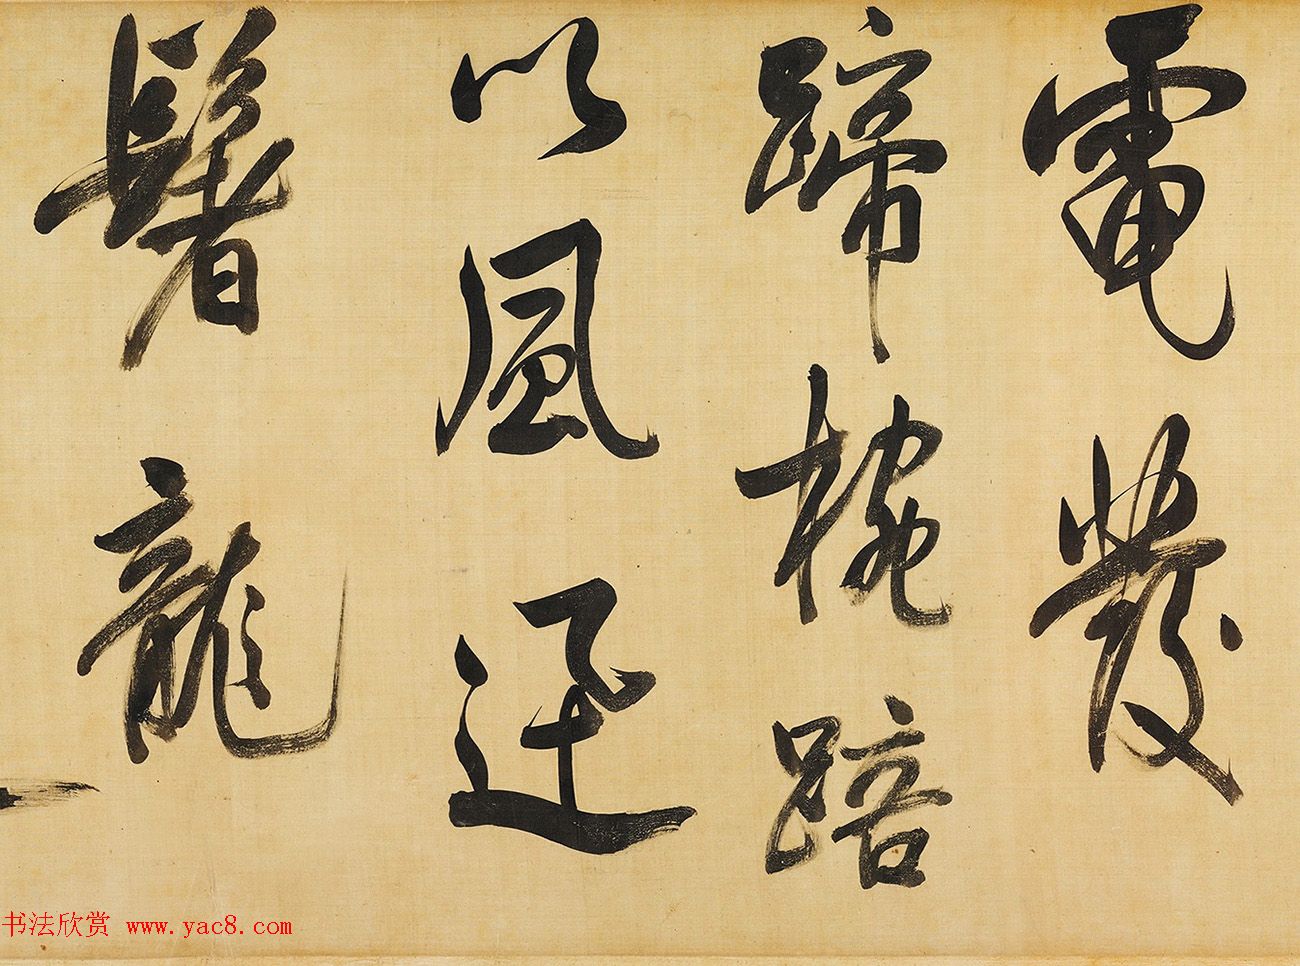 電發
蹄椀踣
以風迅
鬐龍
书法欣赏 www.yac8.com